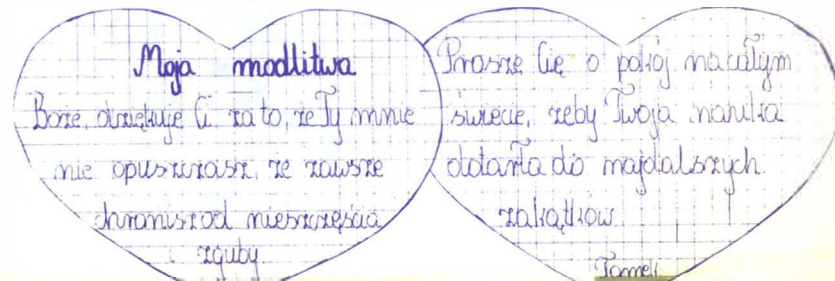 Moja modlitwa
Boże, dziękuję Ci za to, że Ty mnie
nie opuszczasz, że zawsze
chronisz od nieszczęścia
zguby
Proszę Cię o pokój na całym
świecie, żeby Twoja nauka
dotarła do najdalszych
zakątków.
Tomek